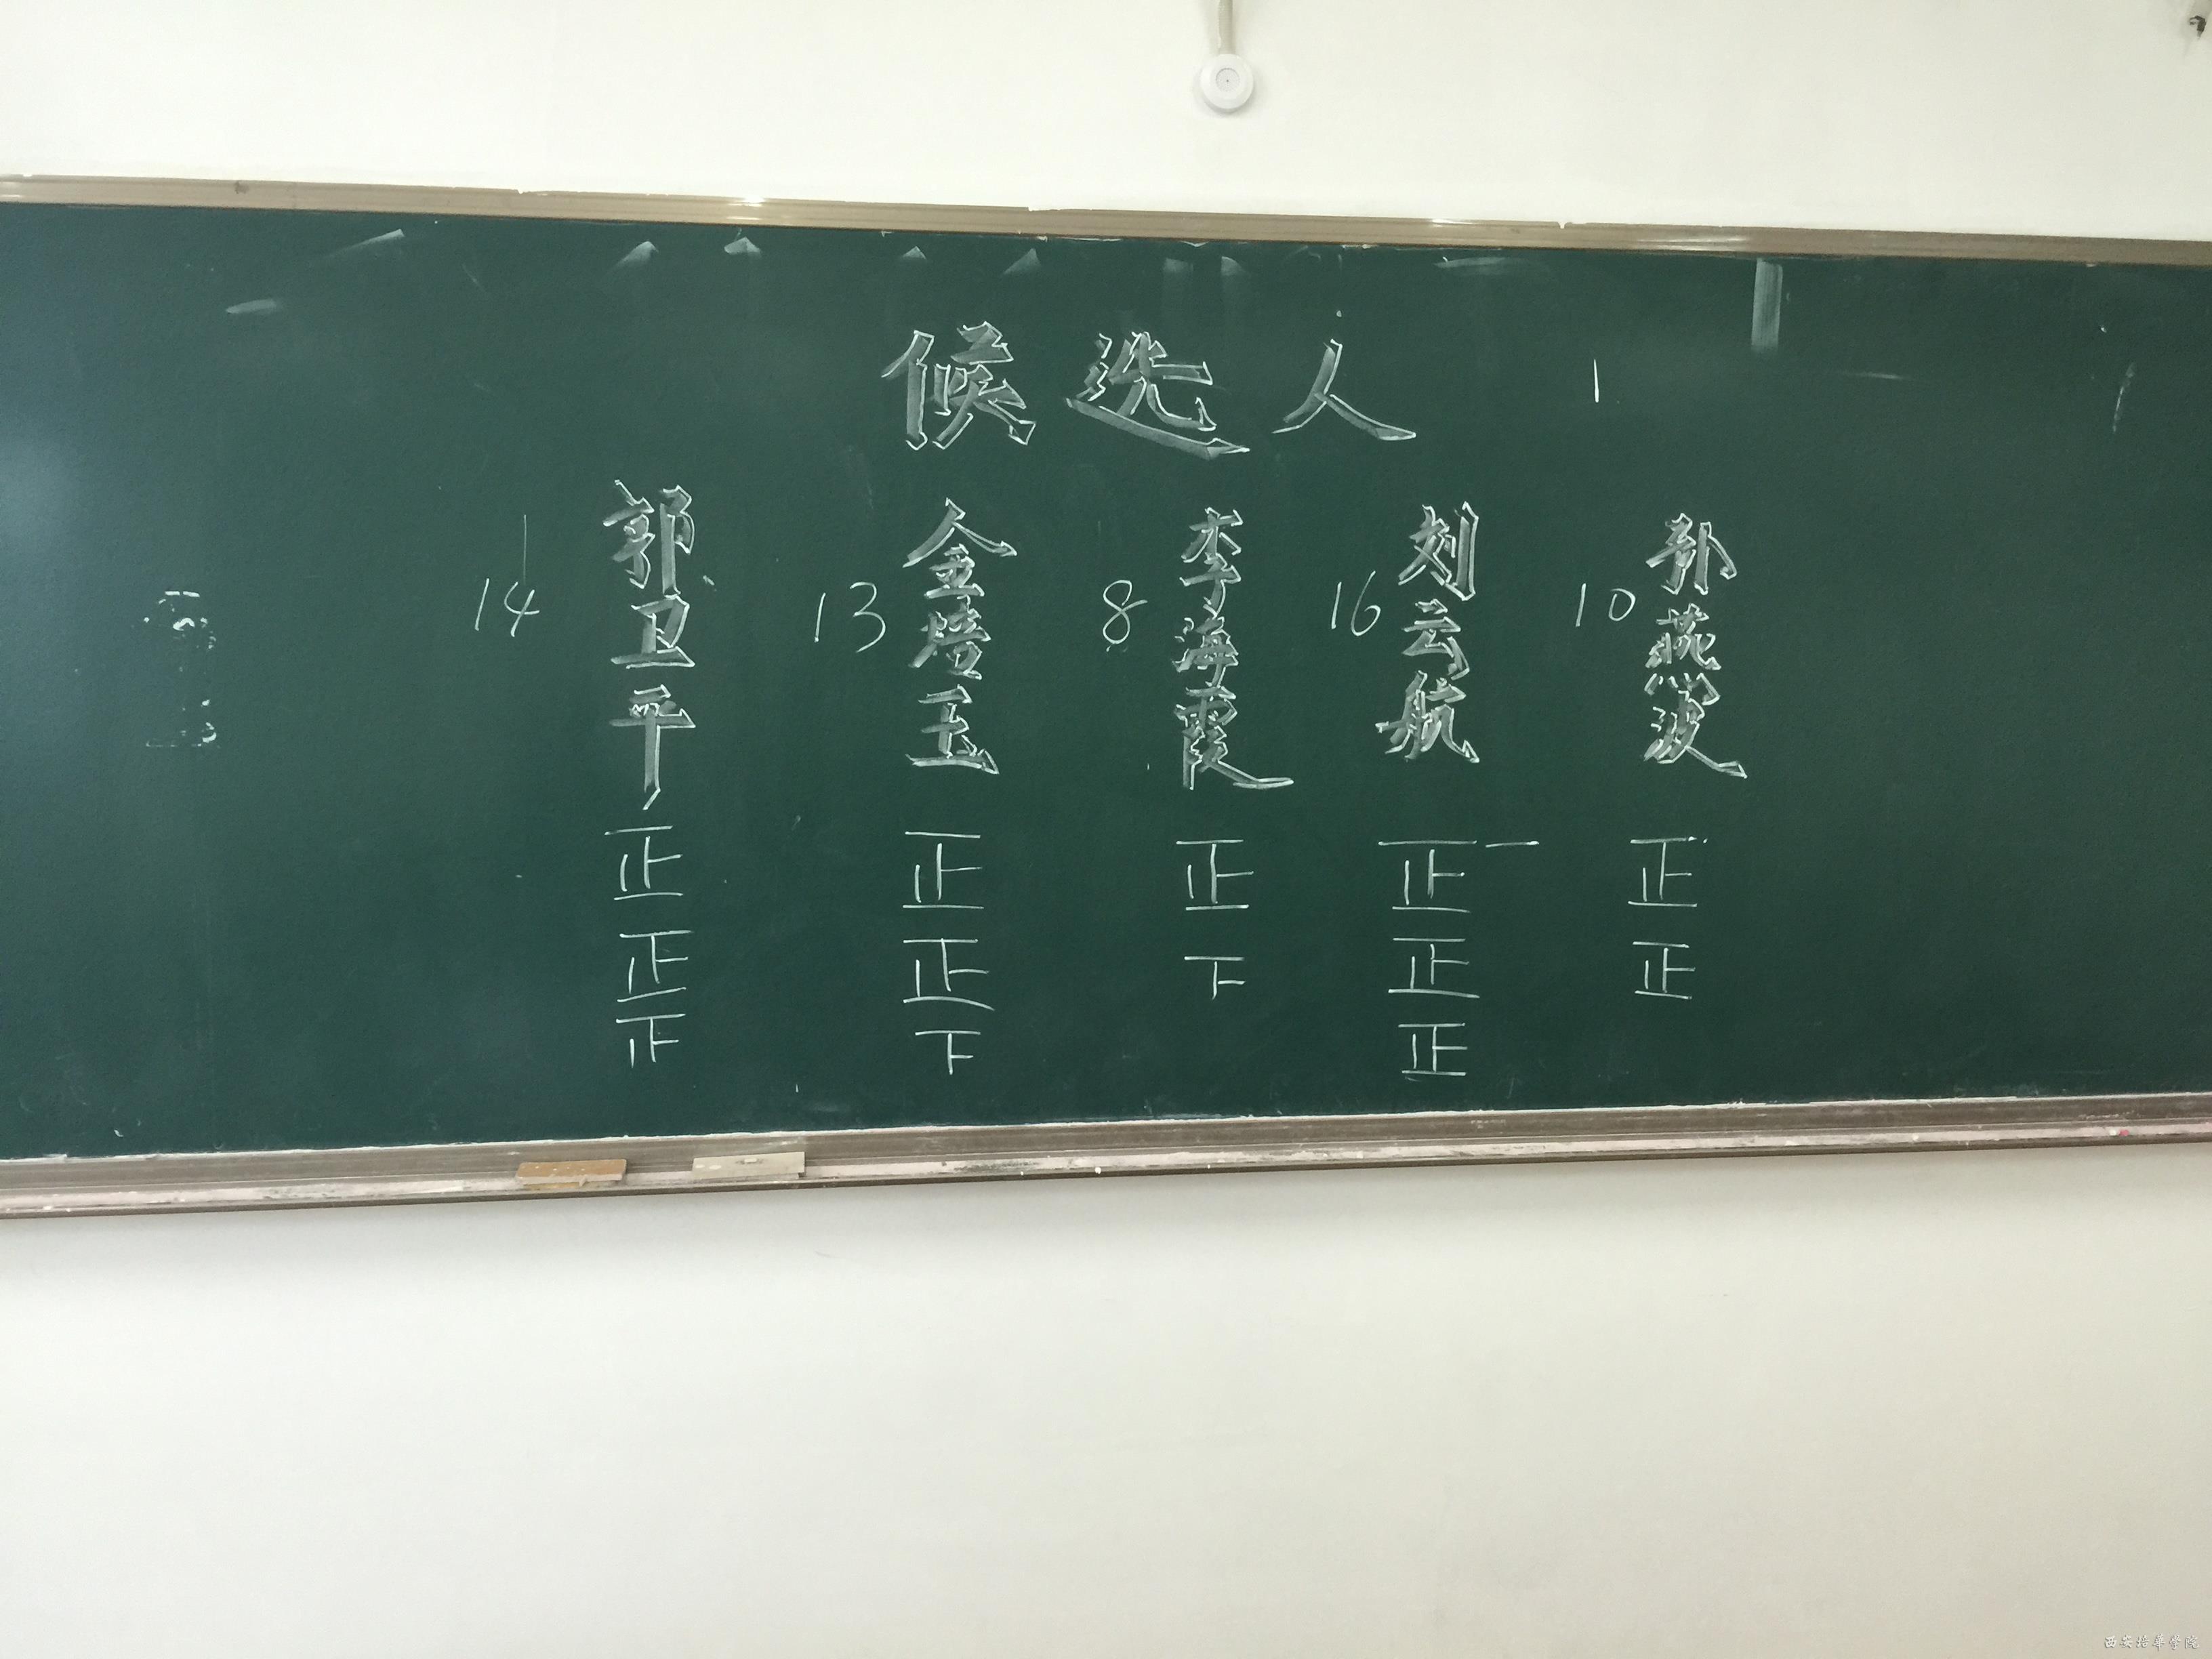 候选人
14 郭卫平 正正正
13 金增玉 正正下
8 李海霞 正下
16 刘云航 正正正一
10 郭燕波 正正
西安培华学院